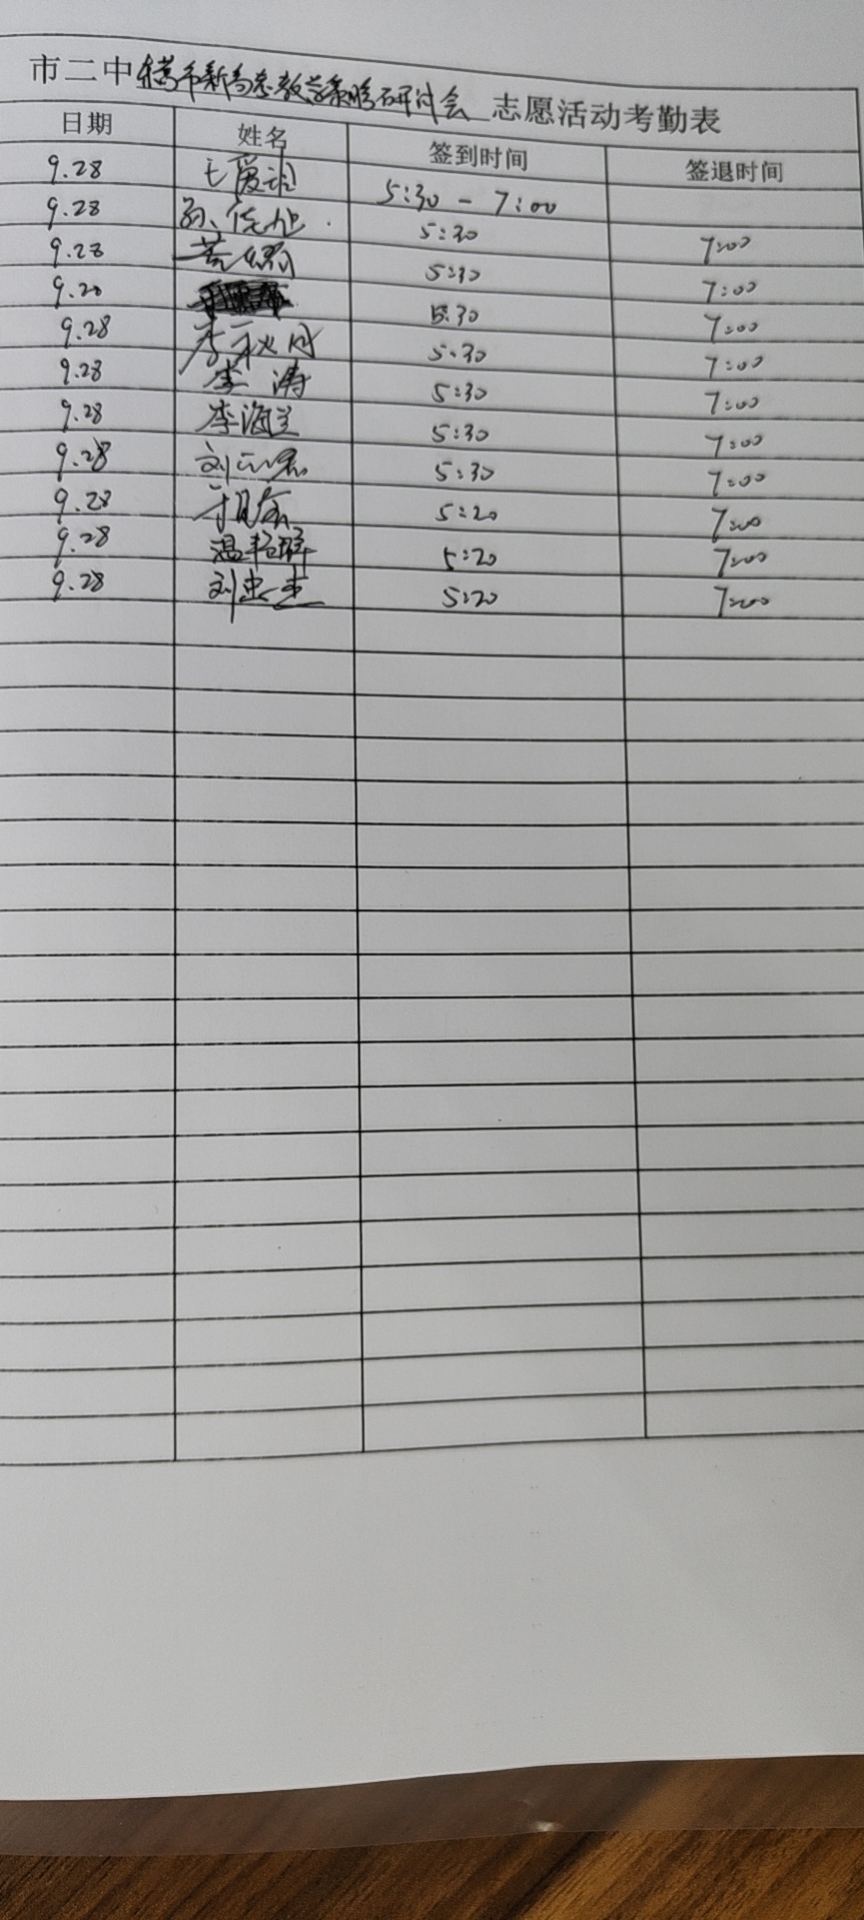 市二中 市新高考教学策略研讨会 志愿活动考勤表
日期 姓名 签到时间 签退时间
9.28 王爱 5:30 - 7:00
9.28 孙 5:30 7:00
9.28 黄 5:30 7:00
9.20 5:30 7:00
9.28 李秋月 5:30 7:00
9.28 李涛 5:30 7:00
9.28 李海兰 5:30 7:00
9.28 刘 5:30 7:00
9.28 5:20 7:00
9.28 温艳辉 5:20 7:00
9.28 刘忠杰 5:20 7:00